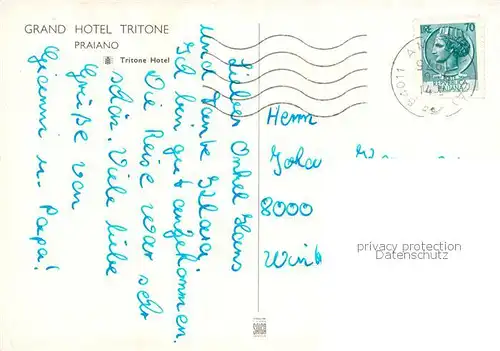 GRAND HOTEL TRITONE
PRAIANO
Tritone Hotel
Lieber Onkel Hans
und Tante
Ich bin gut angekommen.
Die Reise war sehr
schön. Viele liebe
Grüße von
u. Papa!
70
84011
Herrn
8000
privacy protection
Datenschutz